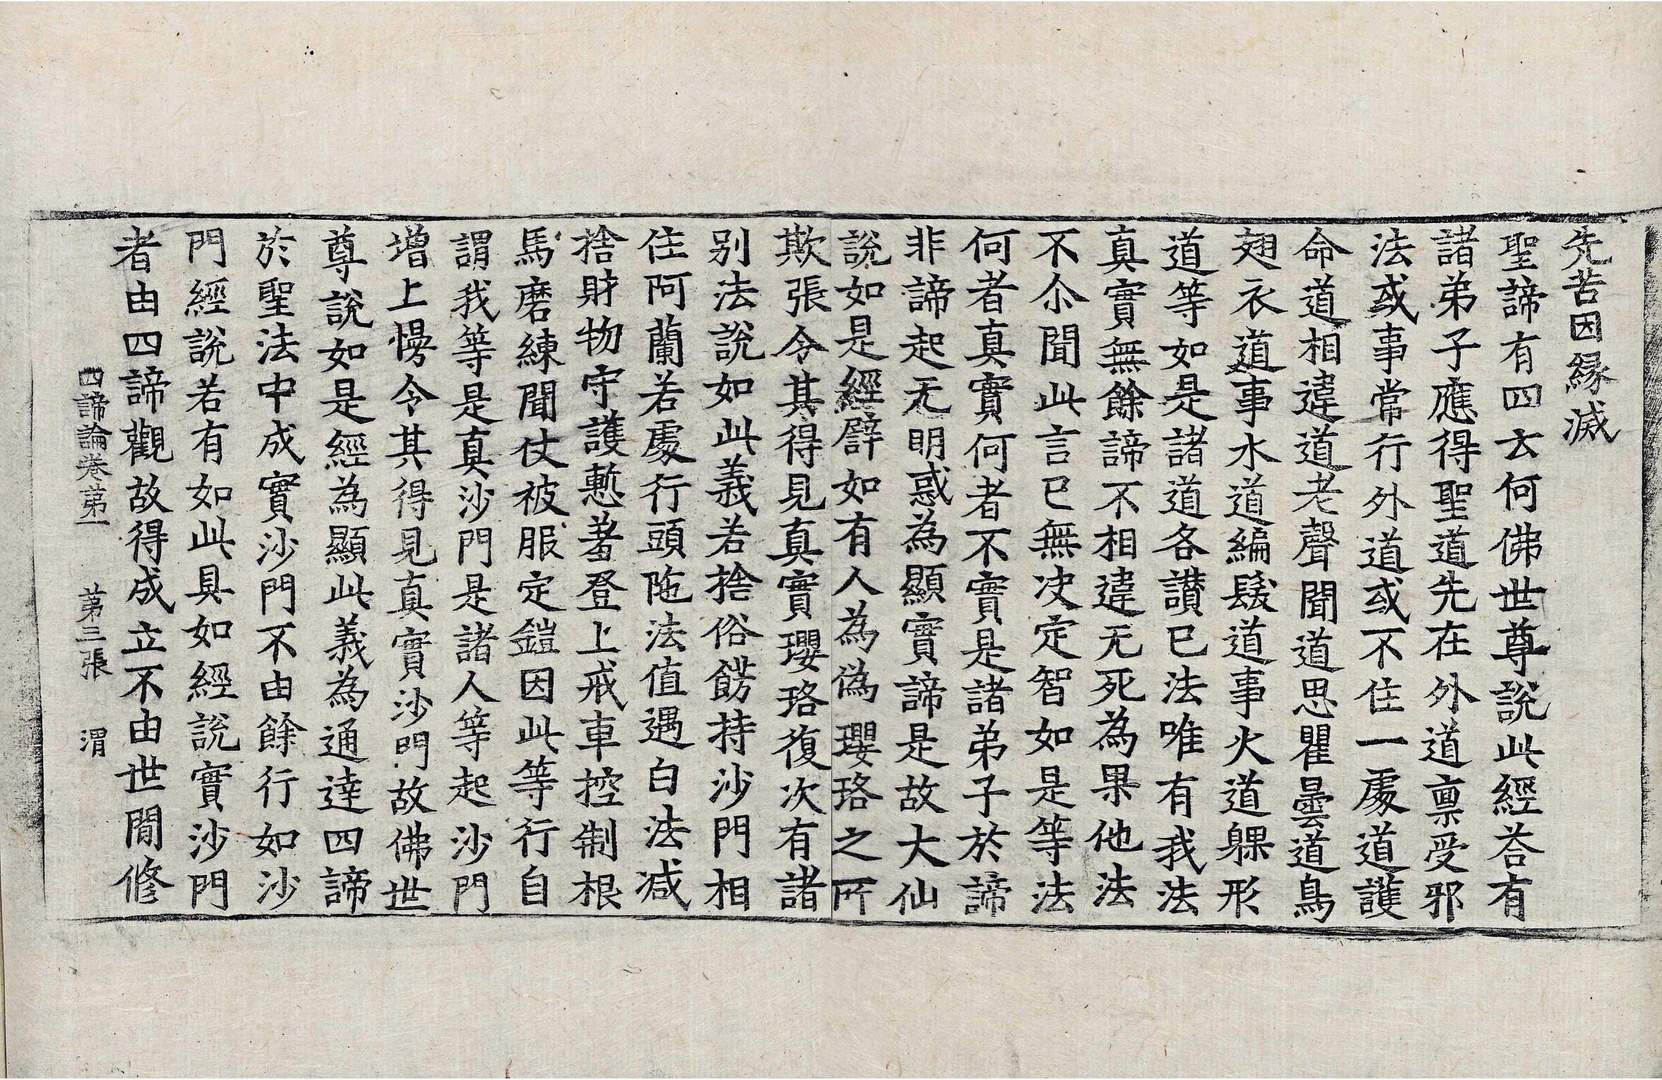 先苦因縁滅
聖諦有四云何佛世尊說此經荅有
諸弟子應得聖道先在外道稟受邪
法或事常行外道或不住一處道護
命道相違道老聲聞道思瞿曇道鳥
翅衣道事水道編髮道事火道躶形
道等如是諸道各讃已法唯有我法
真實無餘諦不相違无死為果他法
不尒聞此言已無决定智如是等法
何者真實何者不實是諸弟子於諦
非諦起无明惑為顯實諦是故大仙
說如是經譬如有人為偽瓔珞之所
欺張令其得見真實瓔珞復次有諸
別法說如此義若捨俗餝持沙門相
住阿蘭若處行頭陁法值遇白法減
捨財物守護慙著登上戒車控制根
馬磨練聞仗被服定鎧因此等行自
謂我等是真沙門是諸人等起沙門
增上慢令其得見真實沙門故佛世
尊說如是經為顯此義為通達四諦
於聖法中成實沙門不由餘行如沙
門經說若有如此具如經說實沙門
者由四諦觀故得成立不由世間修
四諦論卷第一　第三張　渭